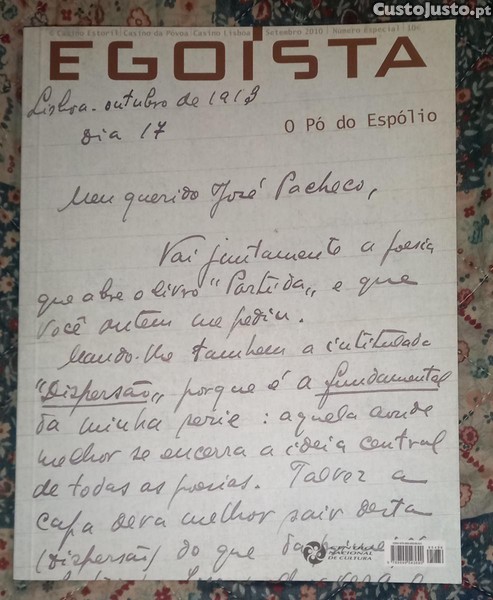 CustoJusto.pt
Casino Estoril | Casino da Póvoa | Casino Lisboa | Setembro 2010 | Número Especial | 10€
EGOÍSTA
Lisboa - outubro de 1913
Dia 17
O Pó do Espólio
Meu querido José Pacheco,
Vai juntamente a poesia
que abre o livro "Partida" e que
você ontem me pediu.
Mando-lhe tambem a intitulada
"Dispersão" porque é a fundamental
da minha serie : aquela aonde
melhor se encerra a ideia central
de todas as poesias. Talvez a
capa deva melhor sair desta
(Dispersão) do que da
NACIONAL
DE CULTURA